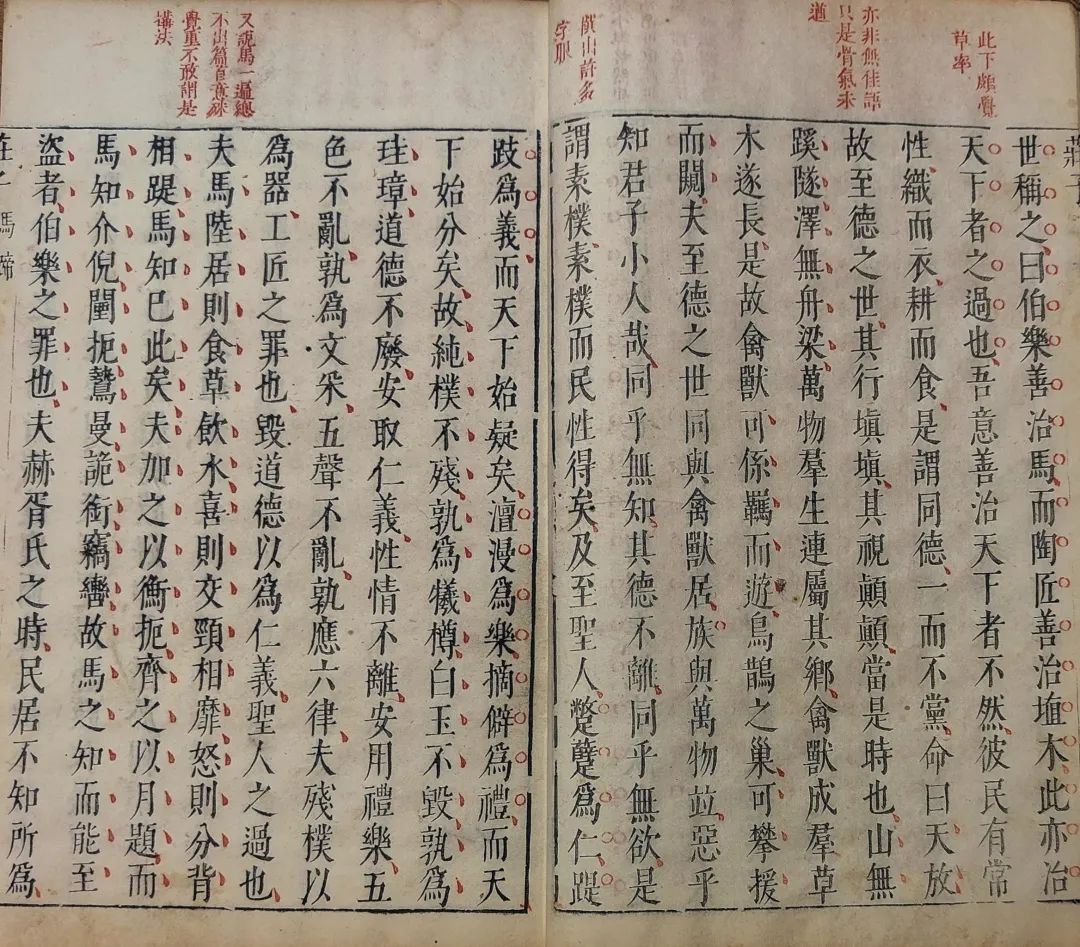 此下頗覺
草率
亦非無佳語
只是骨氣未
遒
撰出許多
字眼
莊子
世稱之曰伯樂善治馬而陶匠善治埴木此亦治
天下者之過也吾意善治天下者不然彼民有常
性織而衣耕而食是謂同德一而不黨命曰天放
故至德之世其行塡塡其視顚顚當是時也山無
蹊隧澤無舟梁萬物羣生連屬其鄉禽獸成羣草
木遂長是故禽獸可係羈而遊鳥鵲之巢可攀援
而闚夫至德之世同與禽獸居族與萬物並惡乎
知君子小人哉同乎無知其德不離同乎無欲是
謂素樸素樸而民性得矣及至聖人蹩躠爲仁踶
又說馬一遍總
不出篇首意殊
覺重不敢謂是
搆法
跂爲義而天下始疑矣澶漫爲樂摘僻爲禮而天
下始分矣故純樸不殘孰爲犧樽白玉不毀孰爲
珪璋道德不廢安取仁義性情不離安用禮樂五
色不亂孰爲文采五聲不亂孰應六律夫殘樸以
爲器工匠之罪也毀道德以爲仁義聖人之過也
夫馬陸居則食草飮水喜則交頸相靡怒則分背
相踶馬知已此矣夫加之以衡扼齊之以月題而
馬知介倪闉扼鷙曼詭銜竊轡故馬之知而能至
盜者伯樂之罪也夫赫胥氏之時民居不知所爲
莊子 馬蹄